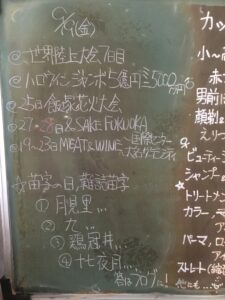 9/19(金)
◎世界陸上大会7日目
◎ハロウィンジャンボ5億円ミニ5000万円
◎25日飯塚花火大会
◎27・28日&SAKE FUKUOKA
◎19~23日MEAT&WINE
国際センター
☆苗字の日、難読苗字
①月見里…
②九…
③鶏冠井…
④十七夜月…
答はブログ!
カッ
小~高
赤
男前
顔剃
えり
ビューティー
シャンプー
★トリートメン
カラー、マ
パーマ、ロ
ストレート(縮
他にも